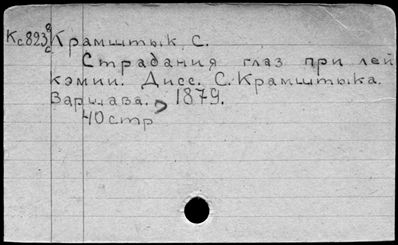 Кс823 Крамштык, С.
Страдания глаз при лей
кэмии. Дисс. С. Крамштыка.
Варшава. 1879.
40 стр